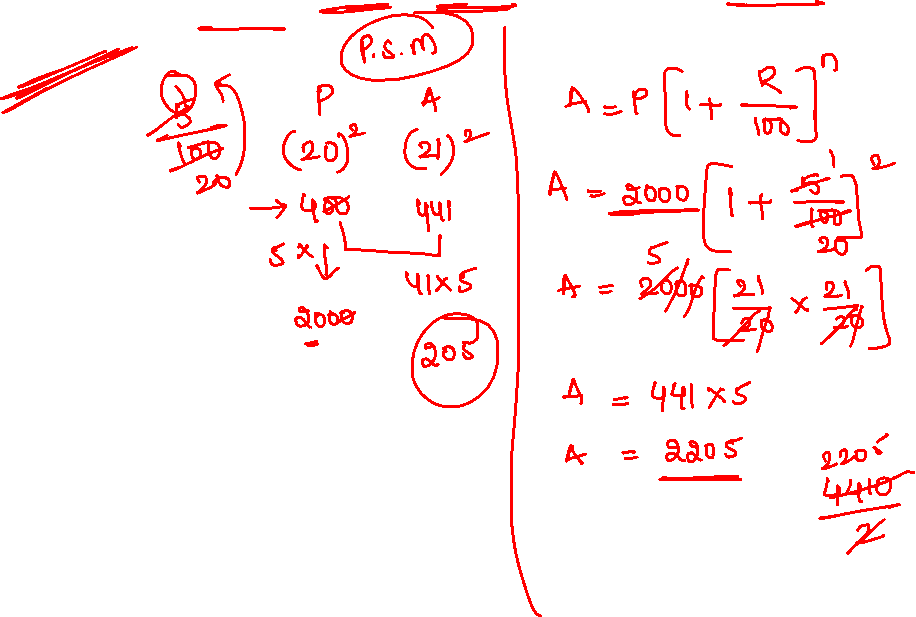 P.S.M
P A
1
5
100
20
(20)² (21)²
→ 400 441
5 × ↓ 41×5
2000
205
A = P [1 + R/100]ⁿ
A = 2000 [1 + 5/100]²
1
20
5
A = 2000 [21/20 × 21/20]
A = 441 × 5
A = 2205
2205
4410
2